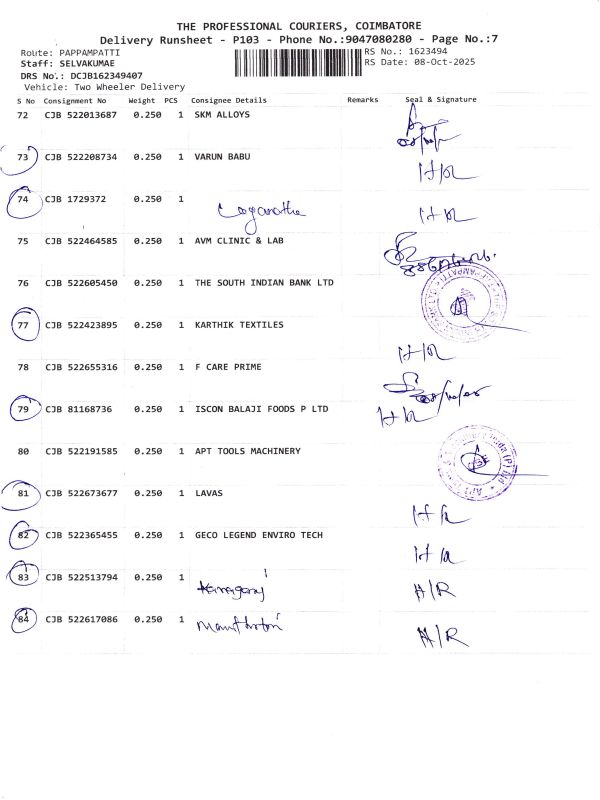 THE PROFESSIONAL COURIERS, COIMBATORE
Delivery Runsheet - P103 - Phone No.:9047080280 - Page No.:7
Route: PAPPAMPATTI RS No.: 1623494
Staff: SELVAKUMAE RS Date: 08-Oct-2025
DRS No.: DCJB162349407
Vehicle: Two Wheeler Delivery
S No Consignment No Weight PCS Consignee Details Remarks Seal & Signature
72 CJB 522013687 0.250 1 SKM ALLOYS
73 CJB 522208734 0.250 1 VARUN BABU
74 CJB 1729372 0.250 1
75 CJB 522464585 0.250 1 AVM CLINIC & LAB
76 CJB 522605450 0.250 1 THE SOUTH INDIAN BANK LTD
77 CJB 522423895 0.250 1 KARTHIK TEXTILES
78 CJB 522655316 0.250 1 F CARE PRIME
79 CJB 81168736 0.250 1 ISCON BALAJI FOODS P LTD
80 CJB 522191585 0.250 1 APT TOOLS MACHINERY
81 CJB 522673677 0.250 1 LAVAS
82 CJB 522365455 0.250 1 GECO LEGEND ENVIRO TECH
83 CJB 522513794 0.250 1 H/R
84 CJB 522617086 0.250 1 H/R